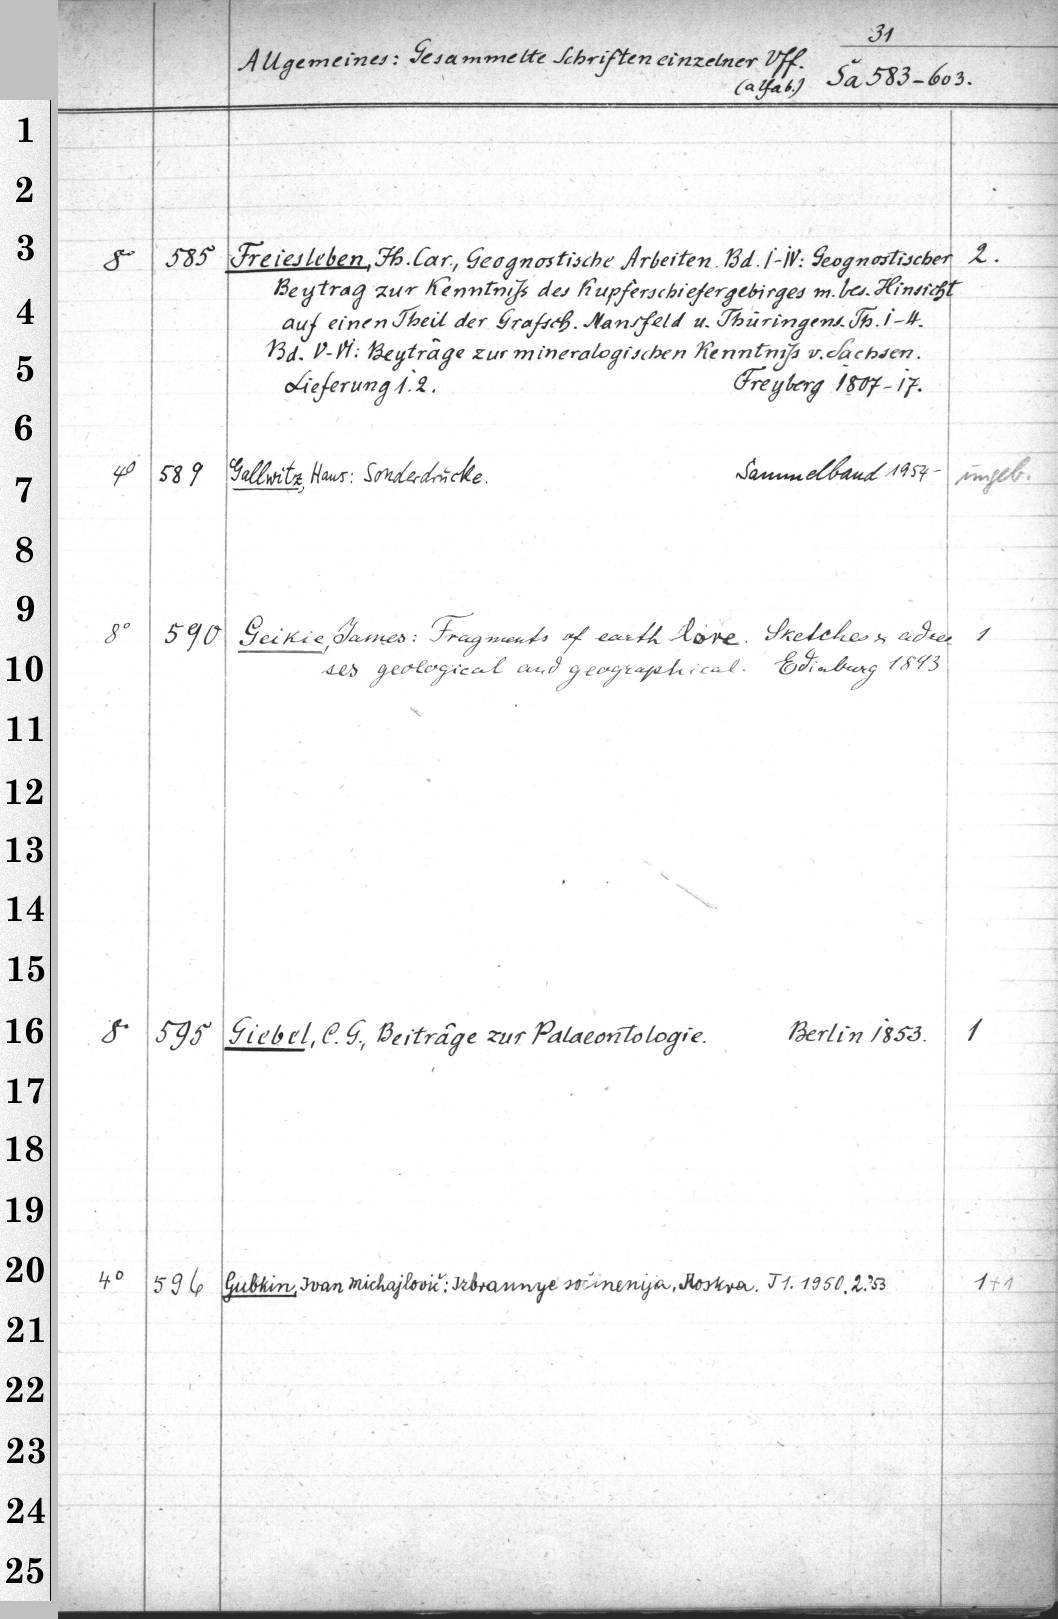 31
Allgemeines: Gesammelte Schriften einzelner Vff. Sǎ 583-603.
(alfab.)
1
2
3 8° 585 Freiesleben, Jh. Car., Geognostische Arbeiten. Bd. I-IV: Geognostischer 2.
Beytrag zur Kenntniß des Kupferschiefergebirges m. bes. Hinsicht
4 auf einen Theil der Grafsch. Mansfeld u. Thüringens. Th. 1-4.
Bd. V-VI: Beyträge zur mineralogischen Kenntniß v. Sachsen.
5 Lieferung 1.2. Freyberg 1807-17.
6
7 4° 589 Gallwitz, Hans: Sonderdrücke. Sammelband 1954- ungeb.
8
9 8° 590 Geikie, James: Fragments of earth lore. Sketches & adres 1
10 ses geological and geographical. Edinburg 1893
11
12
13
14
15
16 8° 595 Giebel, C. G., Beiträge zur Palaeontologie. Berlin 1853. 1
17
18
19
20 4° 596 Gubkin, Ivan Michajlovič: Izbrannye sočinenija, Moskva. T 1. 1950. 2. 53 1+1
21
22
23
24
25